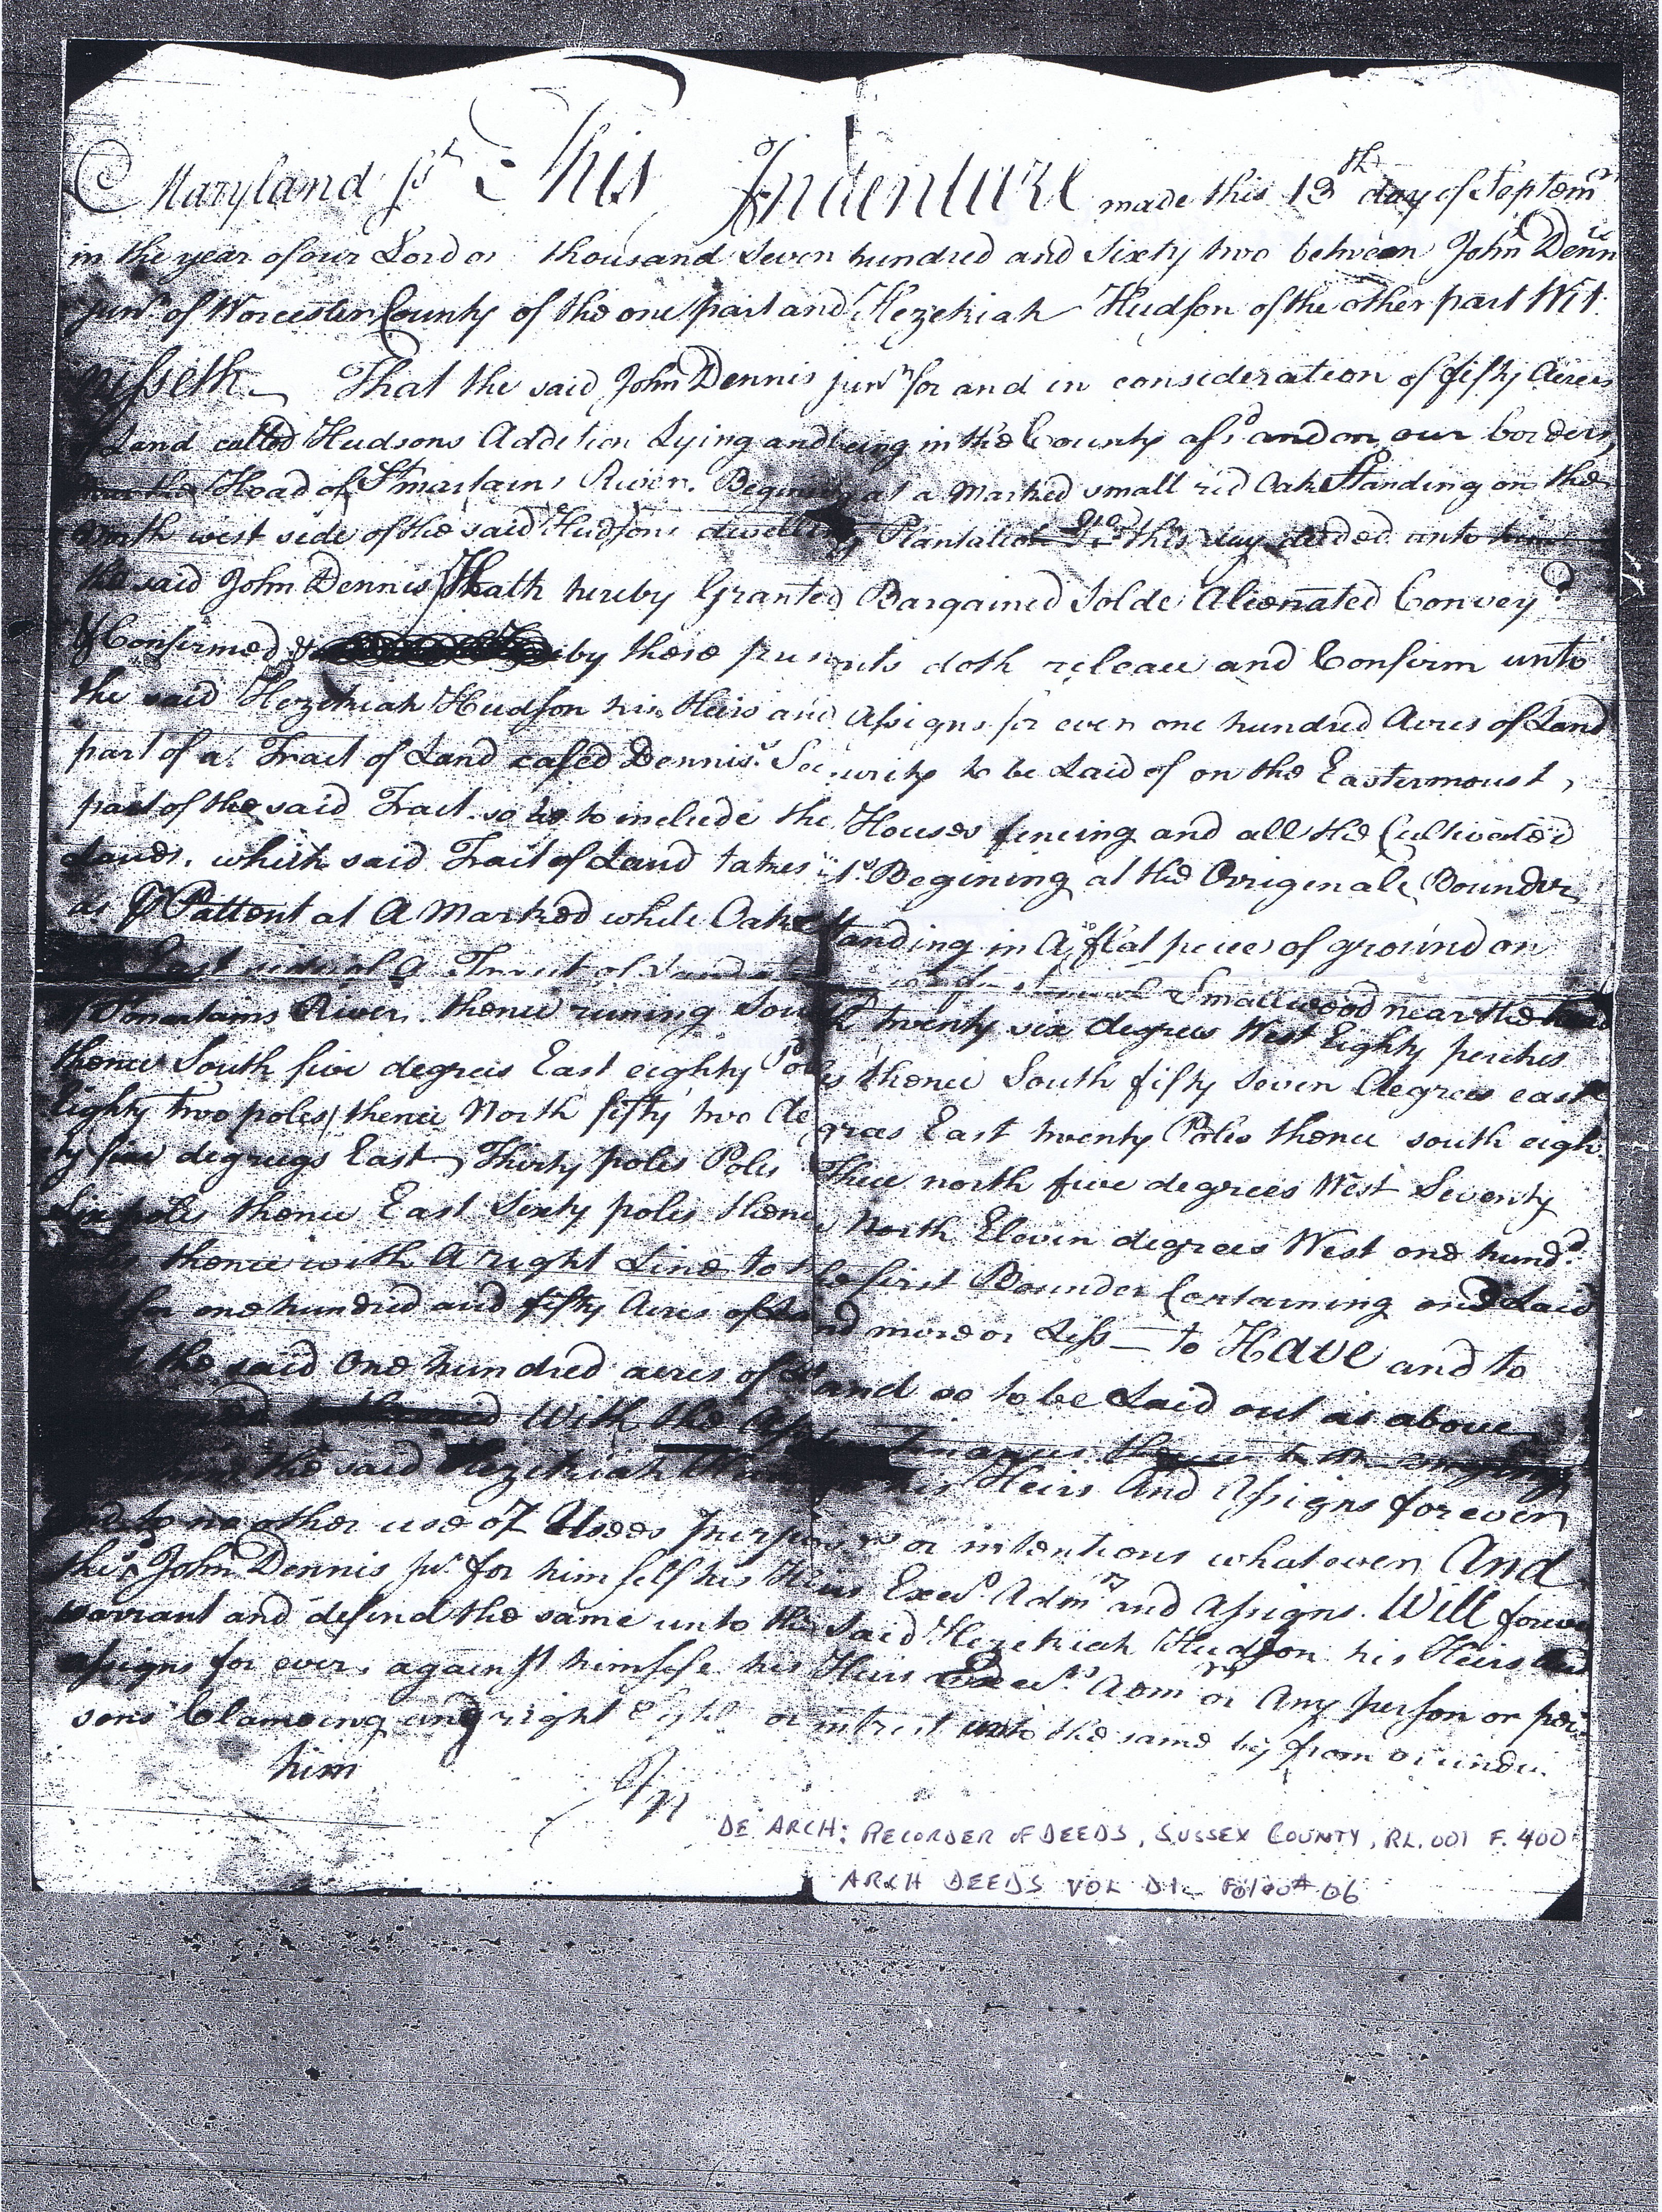 Maryland ss This Indenture made this 13th day of Septem
in the year of our Lord thousand Seven hundred and Sixty two between John Denn
junr of Worcester County of the one part and Hezekiah Hudson of the other part Wit
nesseth That the said John Dennis junr for and in consideration of fifty Acres
of Land called Hudsons Addition Lying and being in the County afsd and on our borders
near the Head of St martains River. Begining at a Marked small red Oake Standing on the
North west side of the said Hudsons dwelling Plantation this day deeded unto him
the said John Dennis Hath hereby Granted Bargained Solde Alienated Convey
& Confirmed & by these presents doth release and Confirm unto
the said Hezekiah Hudson his Heirs and Assigns for ever one hundred Acres of Land
part of a Tract of Land called Dennis's Security to be Laid of on the Eastermoust
part of the said Tract so as to include the Houses fencing and all the Cultivated
Lands. which said Tract of Land takes its Begining at the Origenale Bounder
as P Pattent at A Marked white Oake Standing in A flat peice of ground on
East side of A Tract of Land Smallwood near the head
of St martains River. thence runing South twenty six degrees West Eighty perches
thence South five degrees East eighty Poles thence South fifty Seven degrees east
Eighty two poles thence North fifty two degrees East twenty Poles thence south eigh
ty five degreegs East Thirty poles Poles Thece north five degrees West Seventy
Six poles thence East Sixty poles thence North Eleven degrees West one hundd
poles thence with A right Line to the first Bounder Contarning and Laid
out for one hundred and fifty Acres of Land more or Less to Have and to
the said One hundred acres of Land so to be Laid out as above
With the
the said Hezekiah his Heirs And Assigns for ever
and to no other use or Usees Purposes or intentions whatever And
the sd John Dennis jur for him self his Heirs Execs Admrs and Assigns. Will forever
warrant and defend the same unto the Said Hezekiah Hudson his Heirs and
assigns for ever. against himselfe his Heirs Execrs Admrs or Any person or per
sons Clameing any right Title or intrest unto the same by from or under
him
DE ARCH: RECORDER OF DEEDS, SUSSEX COUNTY, RL. 001 F. 400
ARCH DEEDS VOL D1 Folio# 06